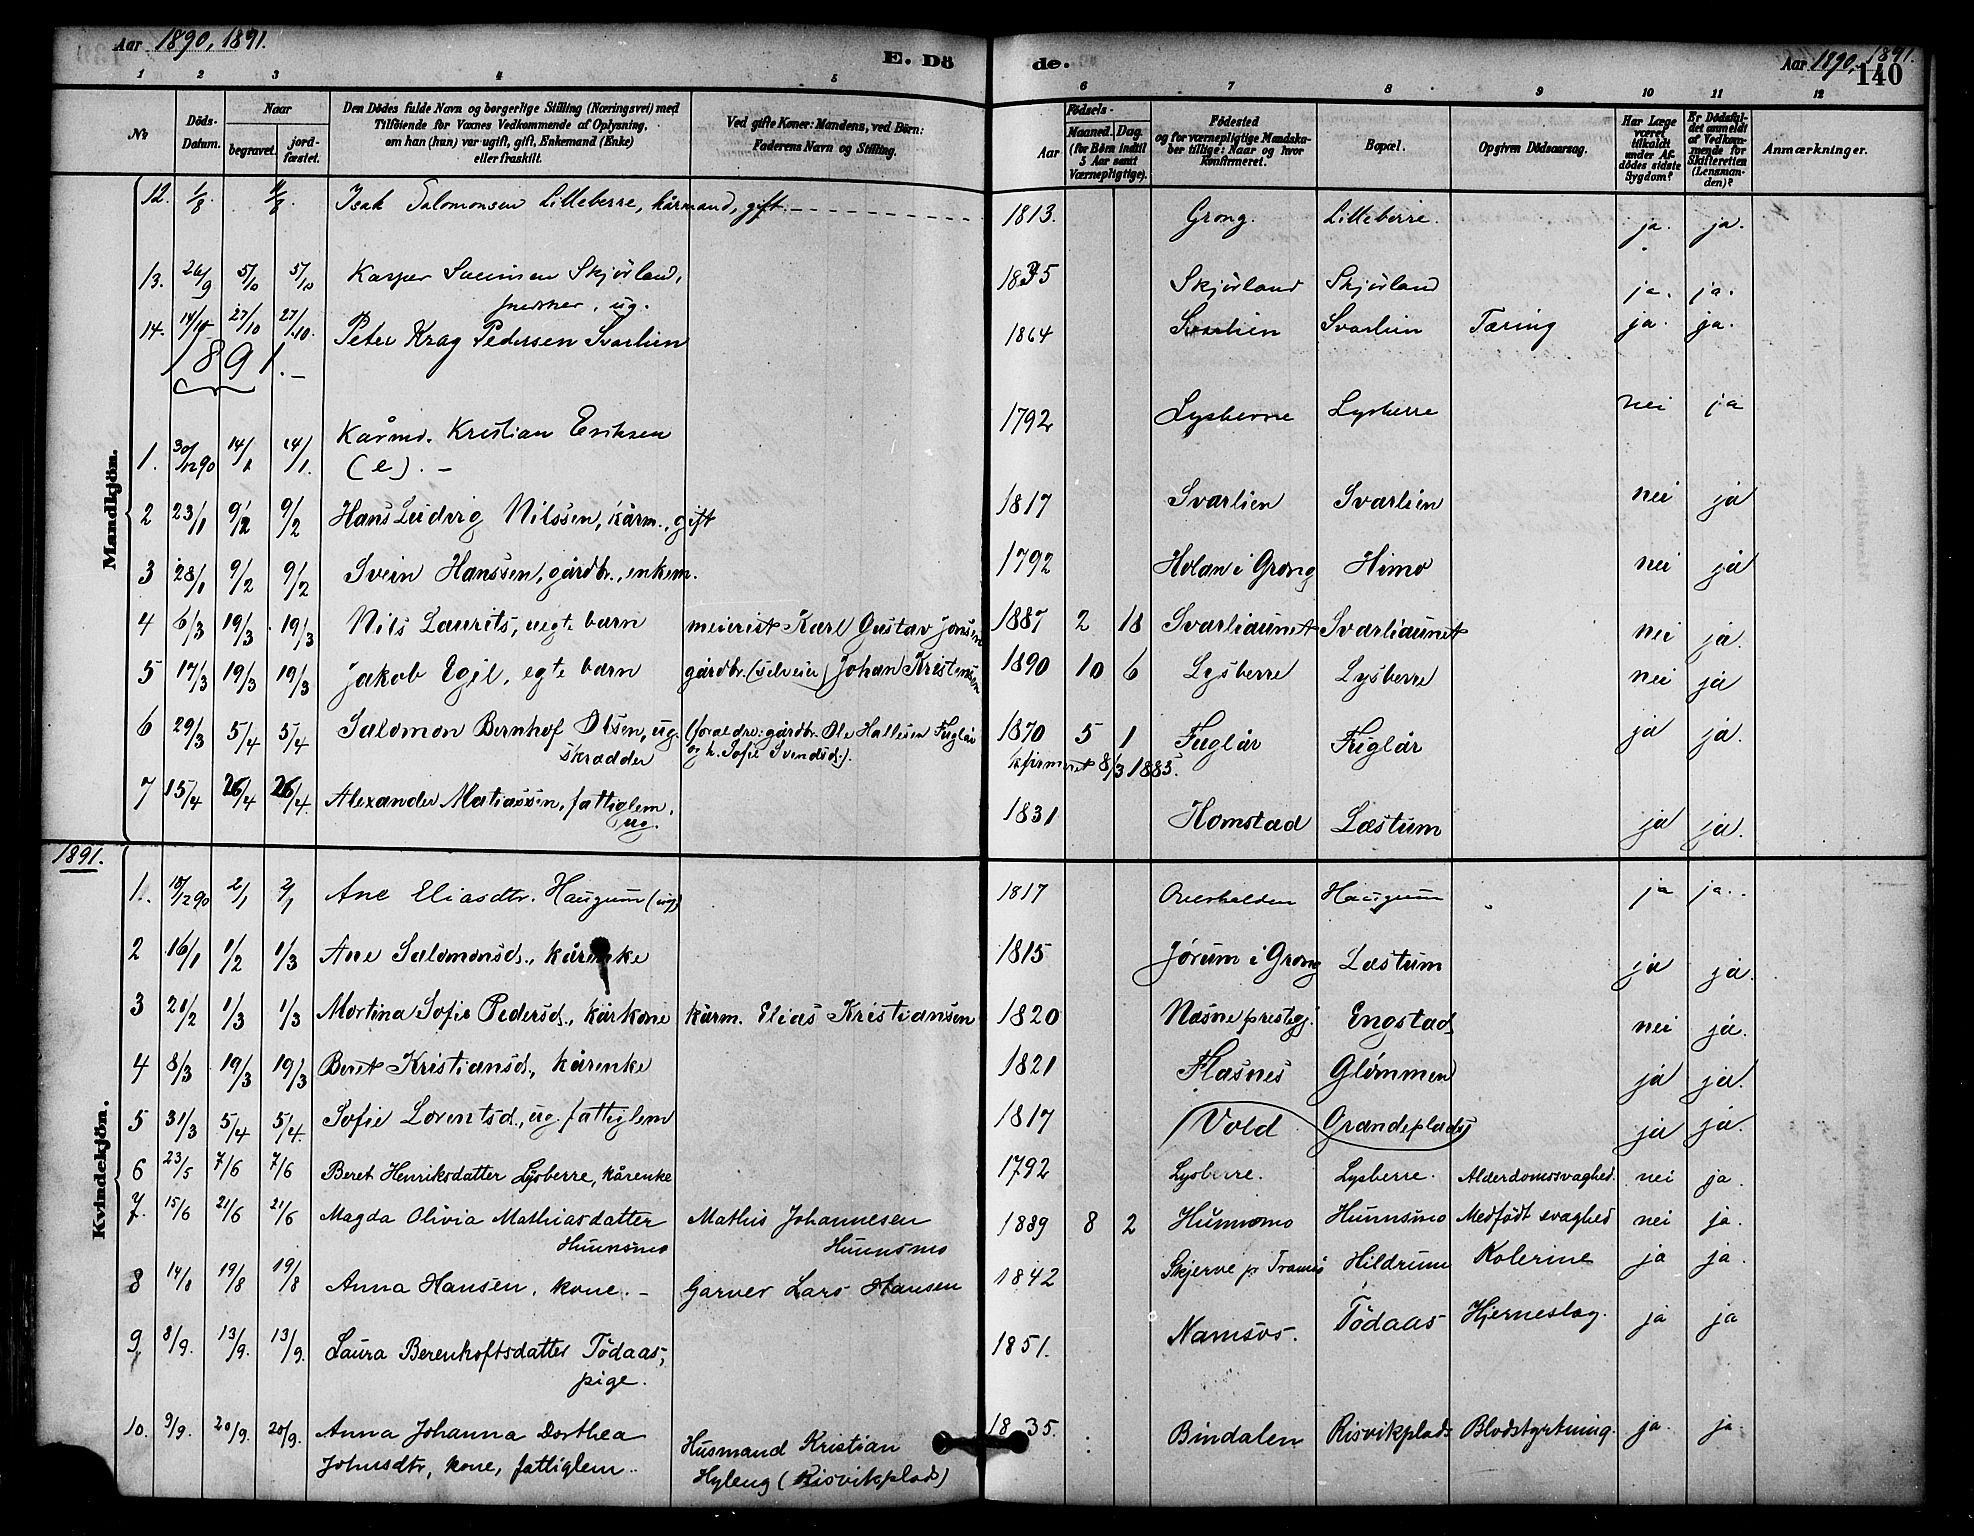 Aar 1890, 1891.
E. Dö de.
Aar 1890, 1891.
140
1 2 3 4 5 6 7 8 9 10 11 12
No
Döds-Datum.
Naar
begravet.
jord-fæstet.
Den Dödes fulde Navn og borgerlige Stilling (Næringsvei) med
Tilföiende for Voxnes Vedkommende af Oplysning,
om han (hun) var ugift, gift, Enkemand (Enke)
eller fraskilt.
Ved gifte Koner: Mandens, ved Börn:
Faderens Navn og Stilling.
Födsels-
Aar
Maaned. Dag.
(for Börn indtil
5 Aar samt
Værnepligtige).
Födested
og for værnepligtige Mandska-
ber tillige: Naar og hvor
konfirmeret.
Bopæl.
Opgiven Dödsaarsag.
Har Læge
været
tilkaldt
under Af-
dödes sidste
Sygdom?
Er Dödsfal-
det anmeldt
af Vedkom-
mende for
Skifteretten
(Lensman-
den)?
Anmærkninger.
Mandkjön.
12. 1/8 Isak Salomonsen Lilleberre, kårmand, gift. 1813. Grong. Lilleberre. ja. ja.
13. 26/9 5/10 5/10 Kasper Skjörland, 1835 Skjörland Skjörland ja. ja.
snedker, ug.
14. 14/10 27/10 27/10. Peter Krag Pedersen Svarlien 1864 Svarlien Svarlien Tæring ja. ja.
1891.-
1. 30/12 90 14/1 14/1. Kårmd. Kristian Eriksen 1792 Lysberre Lysberre nei ja
(e). -
2 23/1 9/2 9/2 Hans Ludvig Nilssen, kårm., gift 1817 Svarlien Svarlien nei ja
3 28/1 9/2 9/2 Svein Hanssen, gårdbr., enkem. 1792 Holan i Grong Himo nei ja
4 6/3 19/3 19/3 Nils Laurits, uegte barn meierist Karl Gustav Jonsen 1887 2 18 Svarliaunet Svarliaunet nei ja.
5 17/3 19/3 19/3 Jakob Egil, egte barn gårdbr. (selveier) Johan Kristensen 1890 10 6 Lysberre Lysberre nei ja
6 29/3 5/4 5/4 Salomon Bernhof Olsen, ug. (foraeldre: gårdbr. Ole Hallesen Fuglår 1870 5 1 Fuglår Fuglår ja ja.
skrædder og h. Sofie Svendsd.). kfirmeret 8/3 1885.
7 15/4 26/4 26/4. Alexander Matiassen, fattiglem, 1831 Homstad Læstum ja ja.
ug.
1891.
Kvindekjön.
1. 18/12 90 2/1 2/1 Ane Eliasdtr. Haugum (ug) 1817 Overhalden Haugum ja ja.
2 16/1 1/2 1/3 Ane Salomonsd., kårenke 1815 Jørum i Grong Læstum ja ja.
3 21/2 1/3 1/3 Martina Sofie Pedersd., kårkone kårm. Elias Kristiansen 1820 Næsne prestegj. Engstad nei ja.
4 8/3 19/3 19/3 Beret Kristiansd., kårenke 1821 Flasnes Glømmen ja ja.
5 31/3 5/4 5/4. Sofie Lorentsd., ug. fattiglem 1817 Vold Grandeplads ja ja.
6 23/5 7/6 7/6 Beret Henriksdatter Lysberre, kårenke 1792 Lysberre. Lysberre. Alderdomssvaghed. nei ja.
7. 15/6 21/6 21/6 Magda Olivia Mathiasdatter Mathis Johannesen 1889 8 2 Hunnsmo Hunnsmo Medfödt svaghed nei ja.
Hunnsmo Hunnsmo
8 14/8 19/8 19/8 Anna Hansen, kone. - Garver Lars Hansen 1842 Skjerve pr Tromsö Hildrum Kolerine ja ja.
9, 8/9. 13/9. 13/9. Laura Berenhoftsdatter Tödaas, 1851. Namsos. Tödaas Hjerneslag. ja ja
pige.
10. 9/9. 20/9. 20/9. Anna Johanna Dorthea Husmand Kristian 1835. Bindalen Risvikplads Blodstyrtning. ja. ja
Johnsdtr, kone, fattiglem. Hyleng (Risvikplads)